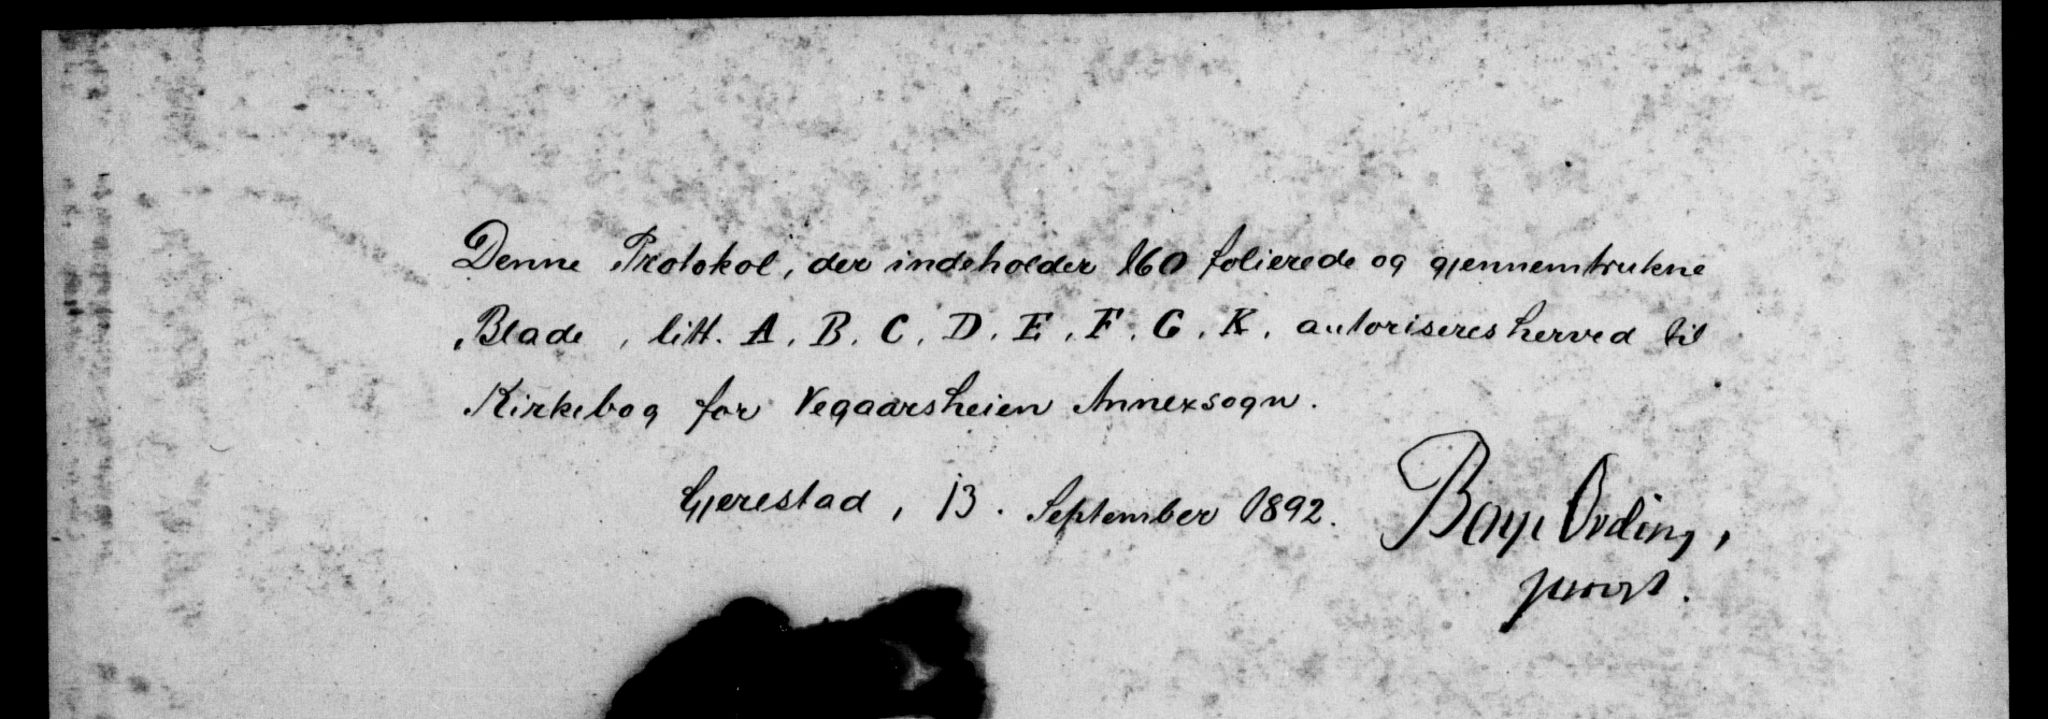 Denne Protokol, der indeholder 160 folierede og gjennemtrukne
Blade, litt. A. B. C. D. E. F. G. K. autoriseres herved til
Kirkebog for Vegaarsheien Annexsogn.
Gjerestad, 13. September 1892.
Boye Ording,
provst.